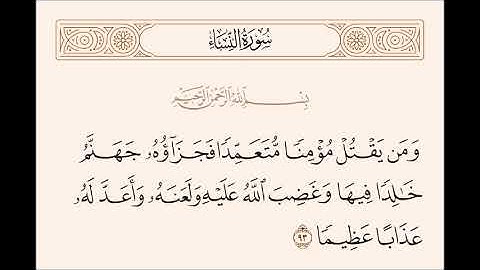 سُورَةُ النِّسَاءِ
بِسْمِ اللَّهِ الرَّحْمَٰنِ الرَّحِيمِ
وَمَن يَقْتُلْ مُؤْمِنًا مُّتَعَمِّدًا فَجَزَآؤُهُۥ جَهَنَّمُ
خَٰلِدًا فِيهَا وَغَضِبَ ٱللَّهُ عَلَيْهِ وَلَعَنَهُۥ وَأَعَدَّ لَهُۥ
عَذَابًا عَظِيمًا ٩٣